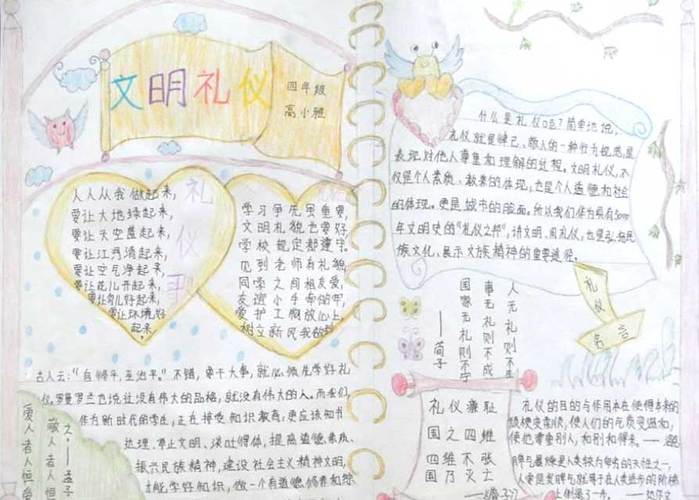 文明礼仪
四年级
高小雅
礼仪歌
人人从我做起来,
要让大地绿起来,
要让天空蓝起来,
要让江河清起来,
要让空气净起来,
要让花儿开起来,
要让鸟儿好起来,
要让环境好
起来,
学习争先虽重要,
文明礼貌也要好,
学校规定都遵守,
见到老师有礼貌,
同学之间相友爱,
友谊小手牵的牢,
爱护工物放心上,
树立新风我做
古人云:“自修平,至治平。”不错,要干大事,就必须先学好礼
仪,罗曼罗兰也说过没有伟大的品格,就没有伟大的人。而我们,
作为新时代的学生,正在接受知识教育,更应该知书
达理,举止文明、谈吐得体,提高道德素质,
振兴民族精神,建设社会主义精神文明,
能学好知识,做一个有道德修养和
爱人者人恒爱
敬人者人恒
之。——孟子
什么是礼仪呢?简单地说,
礼仪就是律己、敬人的一种行为规范,是
表现对他人尊重和理解的过程。文明礼仪,不
仅是个人素质、教养的体现,也是个人道德和社会
的体现。更是城市的脸面。所以我们作为具有5000
年文明史的“礼仪之邦”,讲文明、用礼仪,也是弘扬民
族文化、展示民族精神的重要途径。
礼仪
名言
人无礼则不生
事无礼则不成
国家无礼则不宁
——荀子
礼仪廉耻
国之四维
四维不张
国乃灭亡
——管子
礼仪的目的与作用本在使得本来的
顽梗变柔顺,使人们的气质变温和,
使他尊重别人,和别人和得来。——